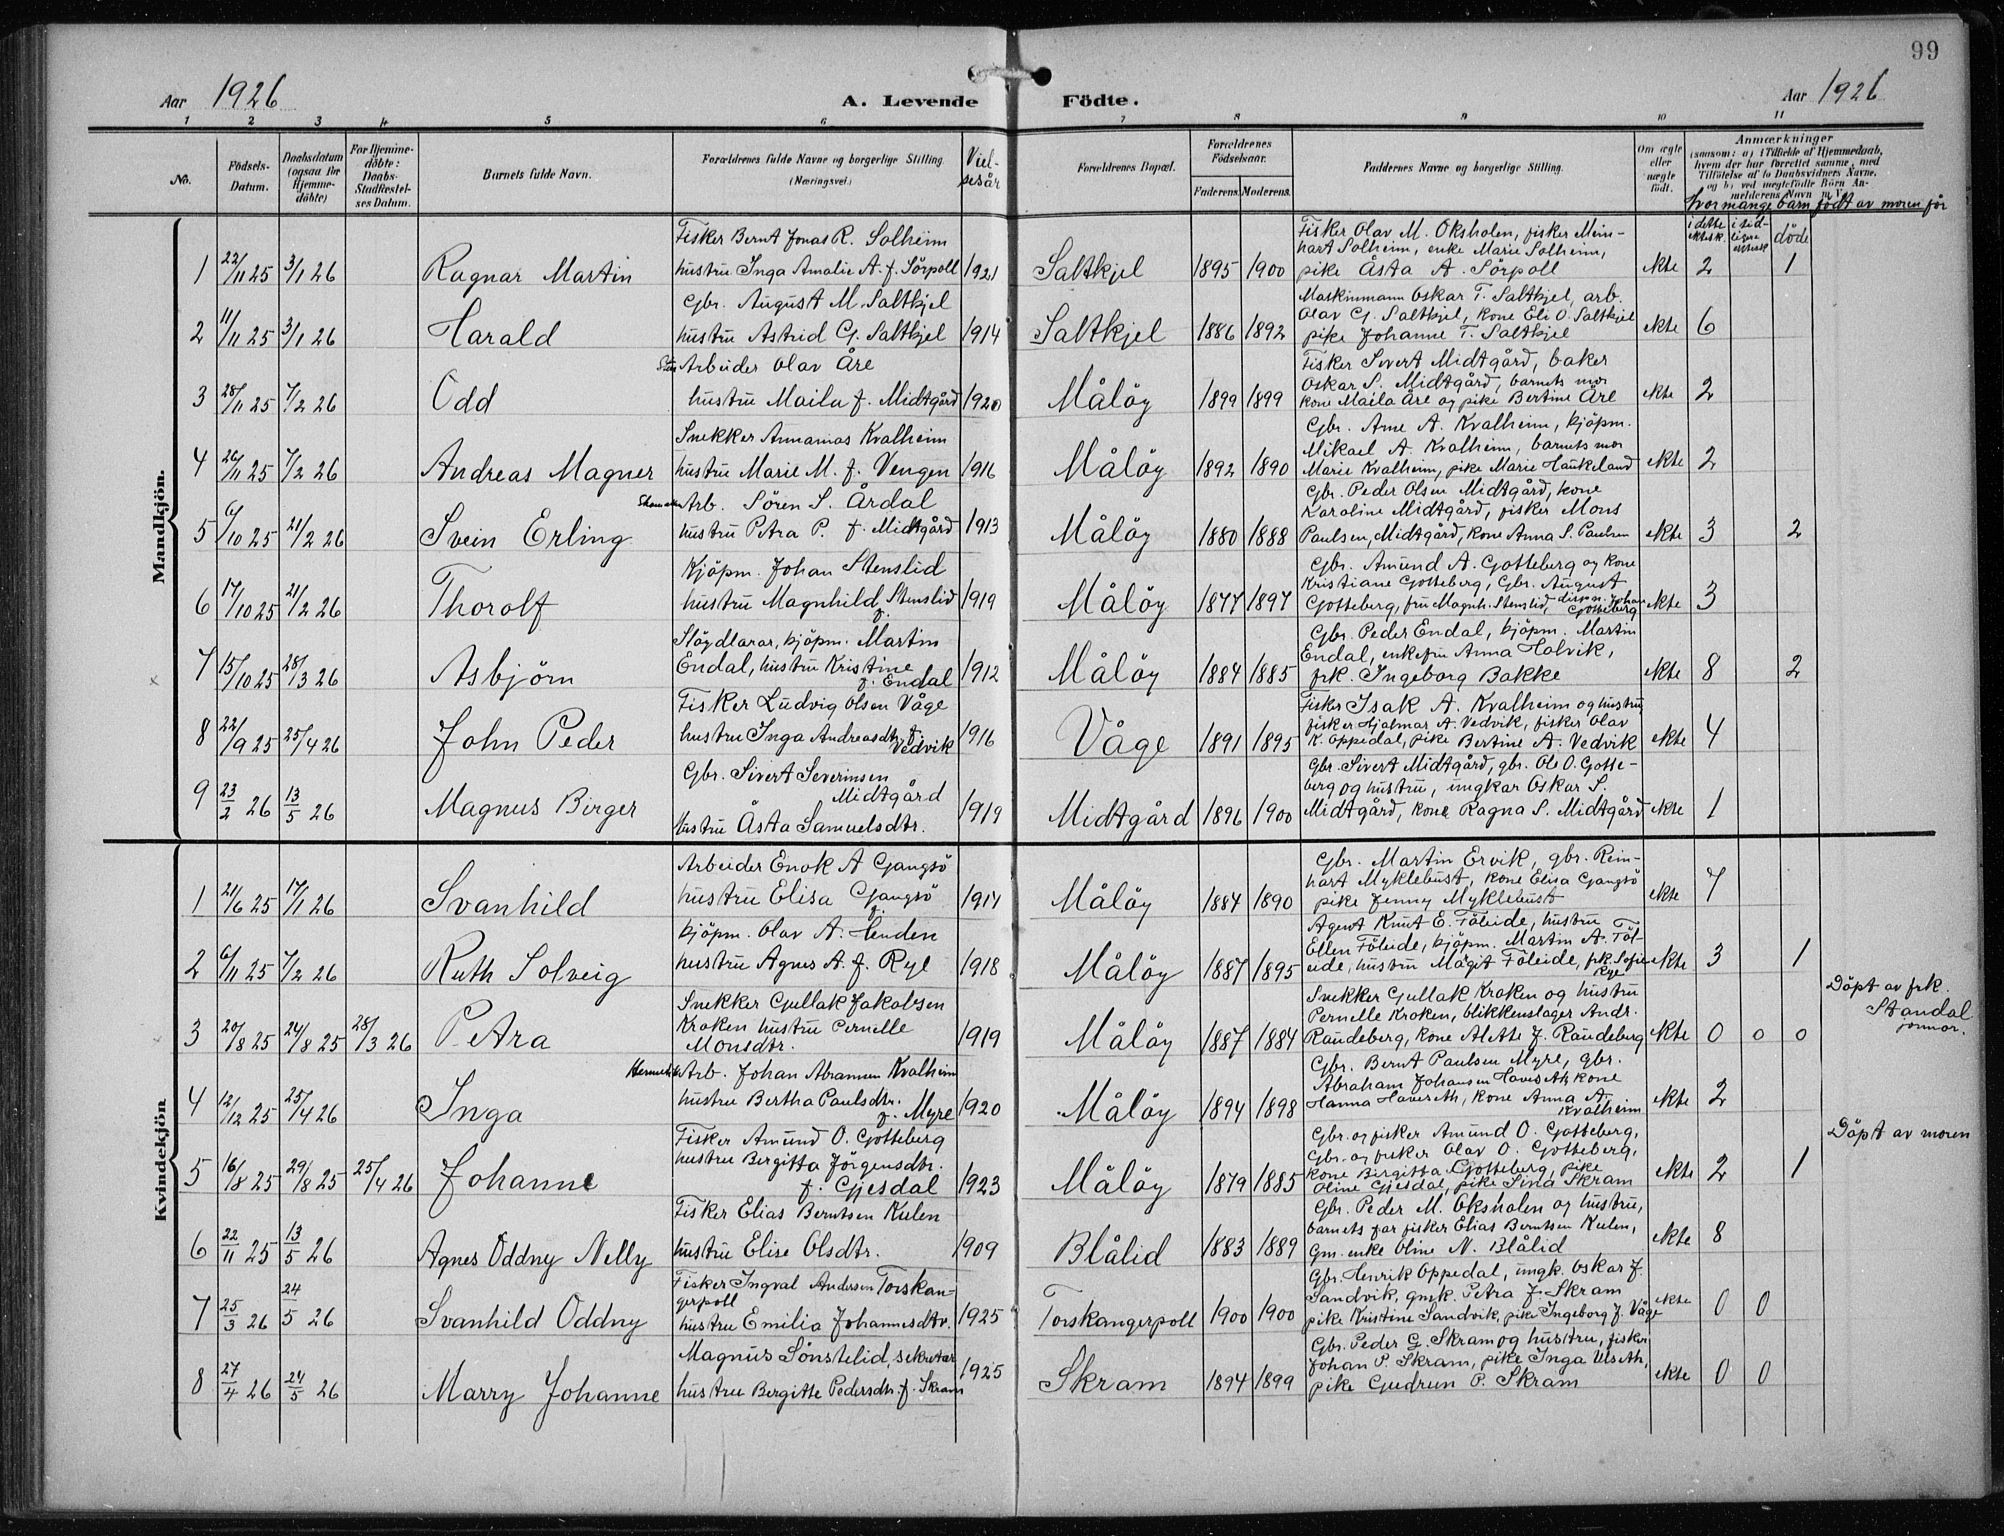 99
Aar 1926 A. Levende Födte. Aar 1926
1 2 3 4 5 6 7 8 9 10 11
No. Födsels-Datum. Daabsdatum (ogsaa for Hjemmedöbte) For Hjemmedöbte: Daabs-Stadfæstelses Datum. Barnets fulde Navn. Forældrenes fulde Navne og borgerlige Stilling. (Næringsvei.) Vielsesår Forældrenes Bopæl. Forældrenes Födselsaar. Faderens. Moderens. Faddernes Navne og borgerlige Stilling. Om ægte eller uægte födt. Anmærkninger
(saasom: a) i Tilfælde af Hjemmedaab, hvem der har forrettet samme, med Tilföielse af to Daabsvidners Navne, og b) ved uægtefödte Börn Anmelderens Navn m. V.)
Hvor mange barn födt av moren för
i dette ektesk. i tidligere ektesk döde
Mandkjön.
Fisker Bernt Jonas R. Solheim Fisker Olav M. Oksholen, fisker Mein-
hart Solheim, enke Marie Solheim,
1 22/11 25 3/1 26 Ragnar Martin hustru Inga Amalie A. f. Sörpoll 1921 Saltkjel 1895 1900 pike Åsta A. Sörpoll ekte 2 1
Gbr. August M. Saltkjel Maskinmann Oskar T. Saltkjel, arb.
Olav G. Saltkjel, kone Eli O. Saltkjel
2 11/11 25 3/1 26 Harald hustru Astrid G. Saltkjel 1914 Saltkjel 1886 1892 pike Johanne T. Saltkjel ekte 6
Arbeider Olav Åre Fisker Sivert Midtgård, baker
Oskar S. Midtgård, barnets mor
3 28/11 25 7/2 26 Odd hustru Maila f. Midtgård 1920 Målöy 1899 1899 kone Maila Åre og pike Bertine Åre ekte 2
Snekker Annanias Kvalheim Gbr. Arne A. Kvalheim, kjöpm.
Mikael A. Kvalheim, barnets mor
4 26/11 25 7/2 26 Andreas Magner hustru Marie M. f. Vengen 1916 Målöy 1892 1890 Marie Kvalheim, pike Marie Haukeland ekte 2
Arb. Sören S. Årdal Gbr. Peder Olsen Midtgård, kone
Karoline Midtgård, fisker Mons
5 6/10 25 21/2 26 Svein Erling hustru Petra P. f. Midtgård 1913 Målöy 1880 1888 Paulsen, Midtgård, kone Anna S. Paulsen ekte 3 2
Kjöpm. Johan Stenslid Gbr. Amund A. Gotteberg og kone
Kristiane Gotteberg, Gbr. August
6 17/10 25 21/2 26 Thorolf hustru Magnhild f. Stenslid 1919 Målöy 1877 1897 Gotteberg, fru Magnh. Stenslid, dispon. Johan Gotteberg ekte 3
Slöydlærar, kjöpm. Martin Gbr. Peder Endal, kjöpm. Martin
Endal, enkefru Anna Holvik,
7 15/10 25 28/3 26 Asbjörn Endal, hustru Kristine f. Endal 1912 Målöy 1884 1885 frk. Ingeborg Bakke ekte 8 2
Fisker Ludvig Olsen Våge Fisker Isak A. Kvalheim og hustru,
fisker Hjalmar A. Vedvik, fisker Olav
8 22/9 25 25/4 26 John Peder hustru Inga Andreasdtr. f. Vedvik 1916 Våge 1891 1895 K. Oppedal, pike Bertine A. Vedvik ekte 4
Gbr. Sivert Severinsen Midtgård Gbr. Sivert Midtgård, gbr. Ole O. Gotte-
berg og hustru, ungkar Oskar S.
9 23/2 26 13/5 26 Magnus Birger hustru Åsta Samuelsdtr. 1919 Midtgård 1896 1900 Midtgård, kone Ragna S. Midtgård ekte 1
Kvindekjön
Arbeider Enok A Gangsö Gbr. Martin Ervik, gbr. Rein-
hart Myklebust, kone Elisa Gangsö
1 21/6 25 17/1 26 Svanhild hustru Elisa f. Gangsö 1911 Målöy 1884 1890 pike Jenny Myklebust ekte 7
kjöpm. Olav A. Henden Agent Knut E. Föleide, hustru
Ellen Föleide, kjöpm. Martin A. Föl-
2 6/11 25 7/2 26 Ruth Solveig hustru Agnes A. f. Rye 1918 Målöy 1887 1895 eide, hustru Magit Föleide, frk. Sofie Rye ekte 3 1
Snekker Gullak Jakobsen Snekker Gullak Kroken og hustru
Pernelle Kroken, blikkenslager Andr.
3 20/8 25 24/8 25 28/3 26 Petra Kroken hustru Pernelle Monsdtr. 1919 Målöy 1887 1884 Raudeberg, kone Alette J. Raudeberg ekte 0 0 0 Döpt av frk. Standal jonmor.
Arb. Johan Abramsen Kvalheim Gbr. Bernt Paulsen Myre, gbr.
Abraham Johansen Haveseth, kone
4 12/12 25 25/4 26 Inga hustru Bertha Paulsdtr. f. Myre 1920 Målöy 1894 1898 Hanna Haveseth, kone Anna A. Kvalheim ekte 2
Fisker Amund O. Gotteberg Gbr. og fisker Amund O. Gotteberg,
Gbr. og fisker Olav O. Gotteberg,
kone Birgitta Gotteberg, pike
5 16/8 25 29/8 25 25/4 26 Johanne hustru Bergitta Jörgensdtr. f. Gjesdal 1923 Målöy 1879 1885 Oline Gjesdal, pike Sina Skram ekte 2 1 Döpt av moren
Fisker Elias Berntsen Kulen Gbr. Peder M. Oksholen og hustru,
barnets far fisker Elias Berntsen Kulen,
6 22/11 25 13/5 26 Agnes Oddny Nelly hustru Elise Olsdtr. 1909 Blålid 1883 1889 Gm. enke Oline N. Blålid ekte 8
Fisker Ingval Andersen Torskangerpoll Gbr. Henrik Oppedal, ungk. Oskar J.
Sandvik, gmk. Petra J. Skram
7 25/3 26 24/5 26 Svanhild Oddny hustru Emilia Johannesdtr. 1925 Torskangerpoll 1900 1900 pike Kristine Sandvik, pike Ingeborg J. Våge ekte 0 0
Magnus Sönstelid, sekretær Gbr. Peder G. Skram og hustru, fisker
Johan P. Skram, pike Inga Ulseth,
8 27/4 26 24/5 26 Marry Johanne hustru Bergitte Pedersdtr. f. Skram 1925 Skram 1894 1899 pike Gudrun P. Skram ekte 0 0